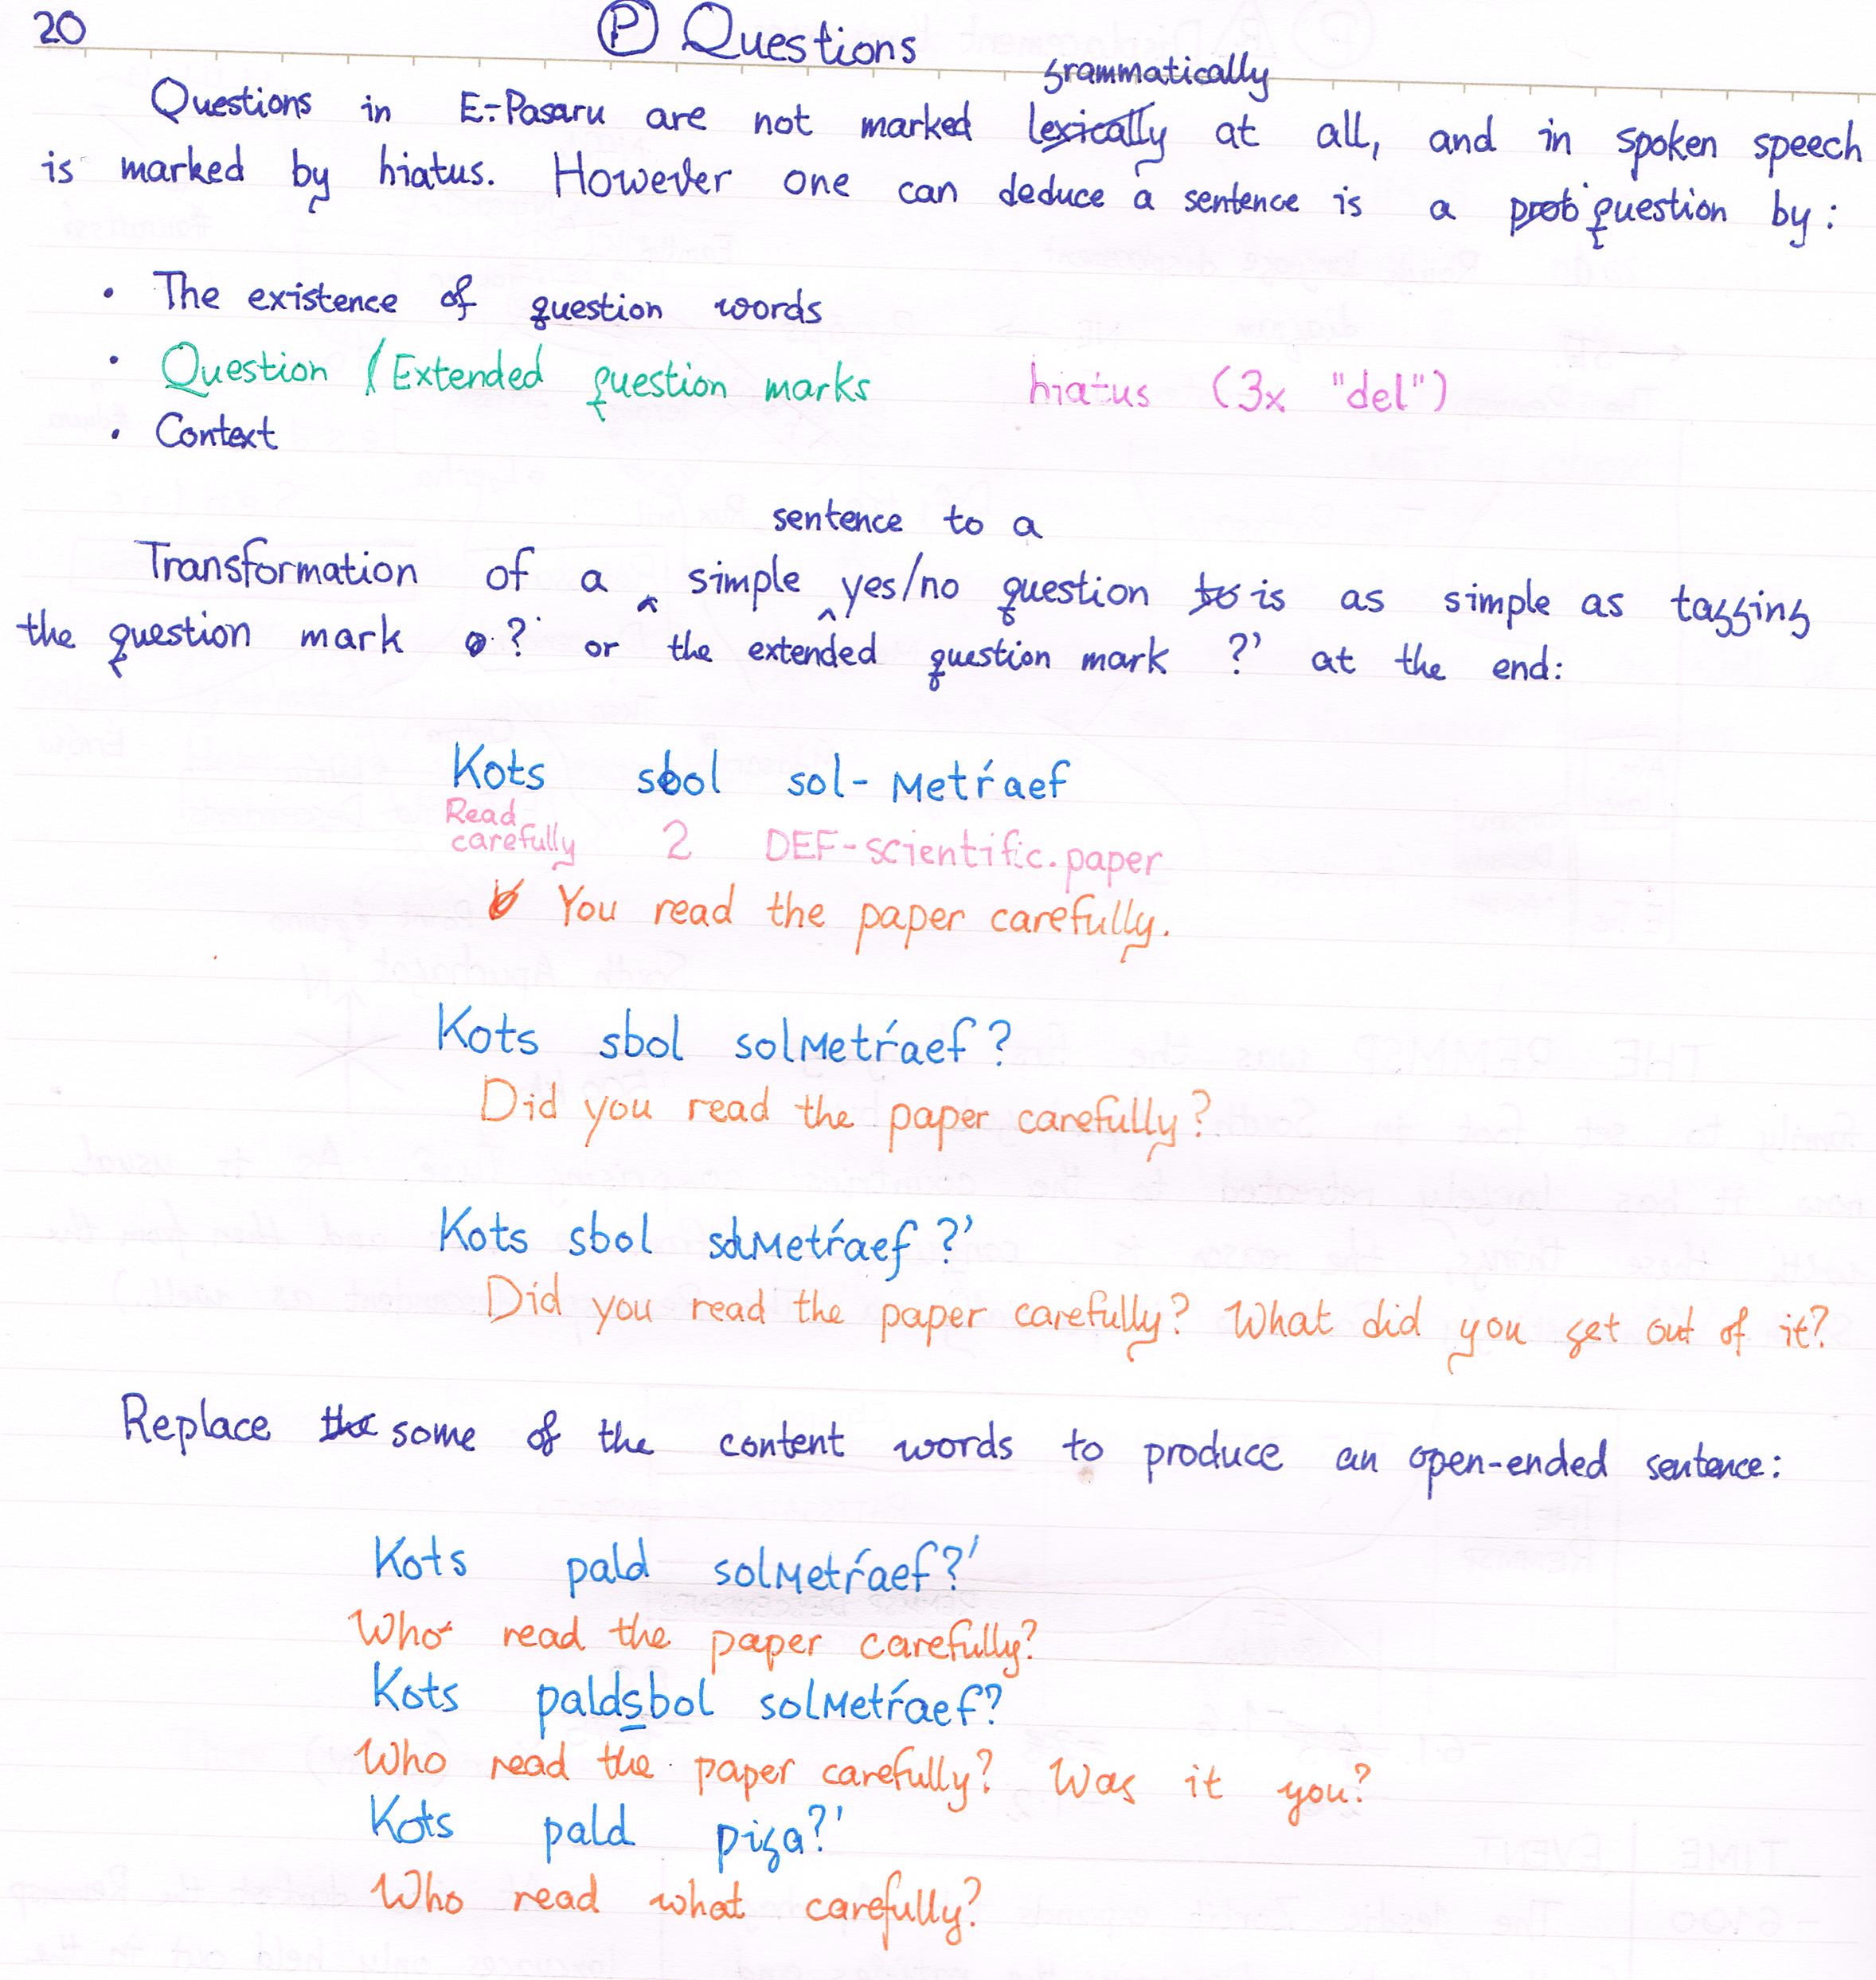 20
Ⓟ Questions
grammatically
Questions in E-Pasaru are not marked lexically at all, and in spoken speech
is marked by hiatus. However one can deduce a sentence is a prob question by:
• The existence of question words
• Question / Extended question marks hiatus (3x "del")
• Context
sentence to a
Transformation of a ^ simple ^ yes/no question to is as simple as tagging
the question mark ? or the extended question mark ?' at the end:
Kots sbol sol-Metŕaef
Read carefully 2 DEF-scientific.paper
You read the paper carefully.
Kots sbol solMetŕaef?
Did you read the paper carefully?
Kots sbol solMetŕaef?'
Did you read the paper carefully? What did you get out of it?
Replace the some of the content words to produce an open-ended sentence:
Kots pald solMetŕaef?'
Who read the paper carefully?
Kots paldsbol solMetŕaef?
Who read the paper carefully? Was it you?
Kots pald piga?'
Who read what carefully?